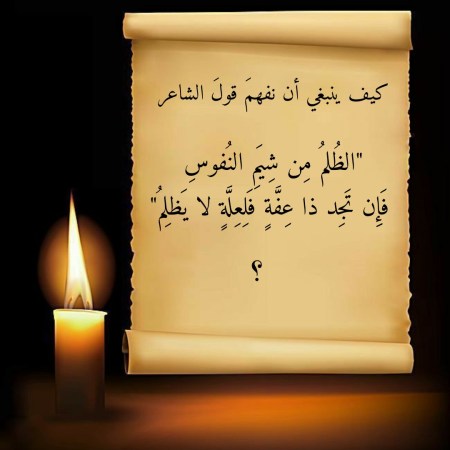 كيف ينبغي أن نفهمَ قولَ الشاعر
"الظُلمُ مِن شِيَمِ النُفوسِ
فَإِن تَجِد ذا عِفَّةٍ فَلِعِلَّةٍ لا يَظلِمُ"
؟